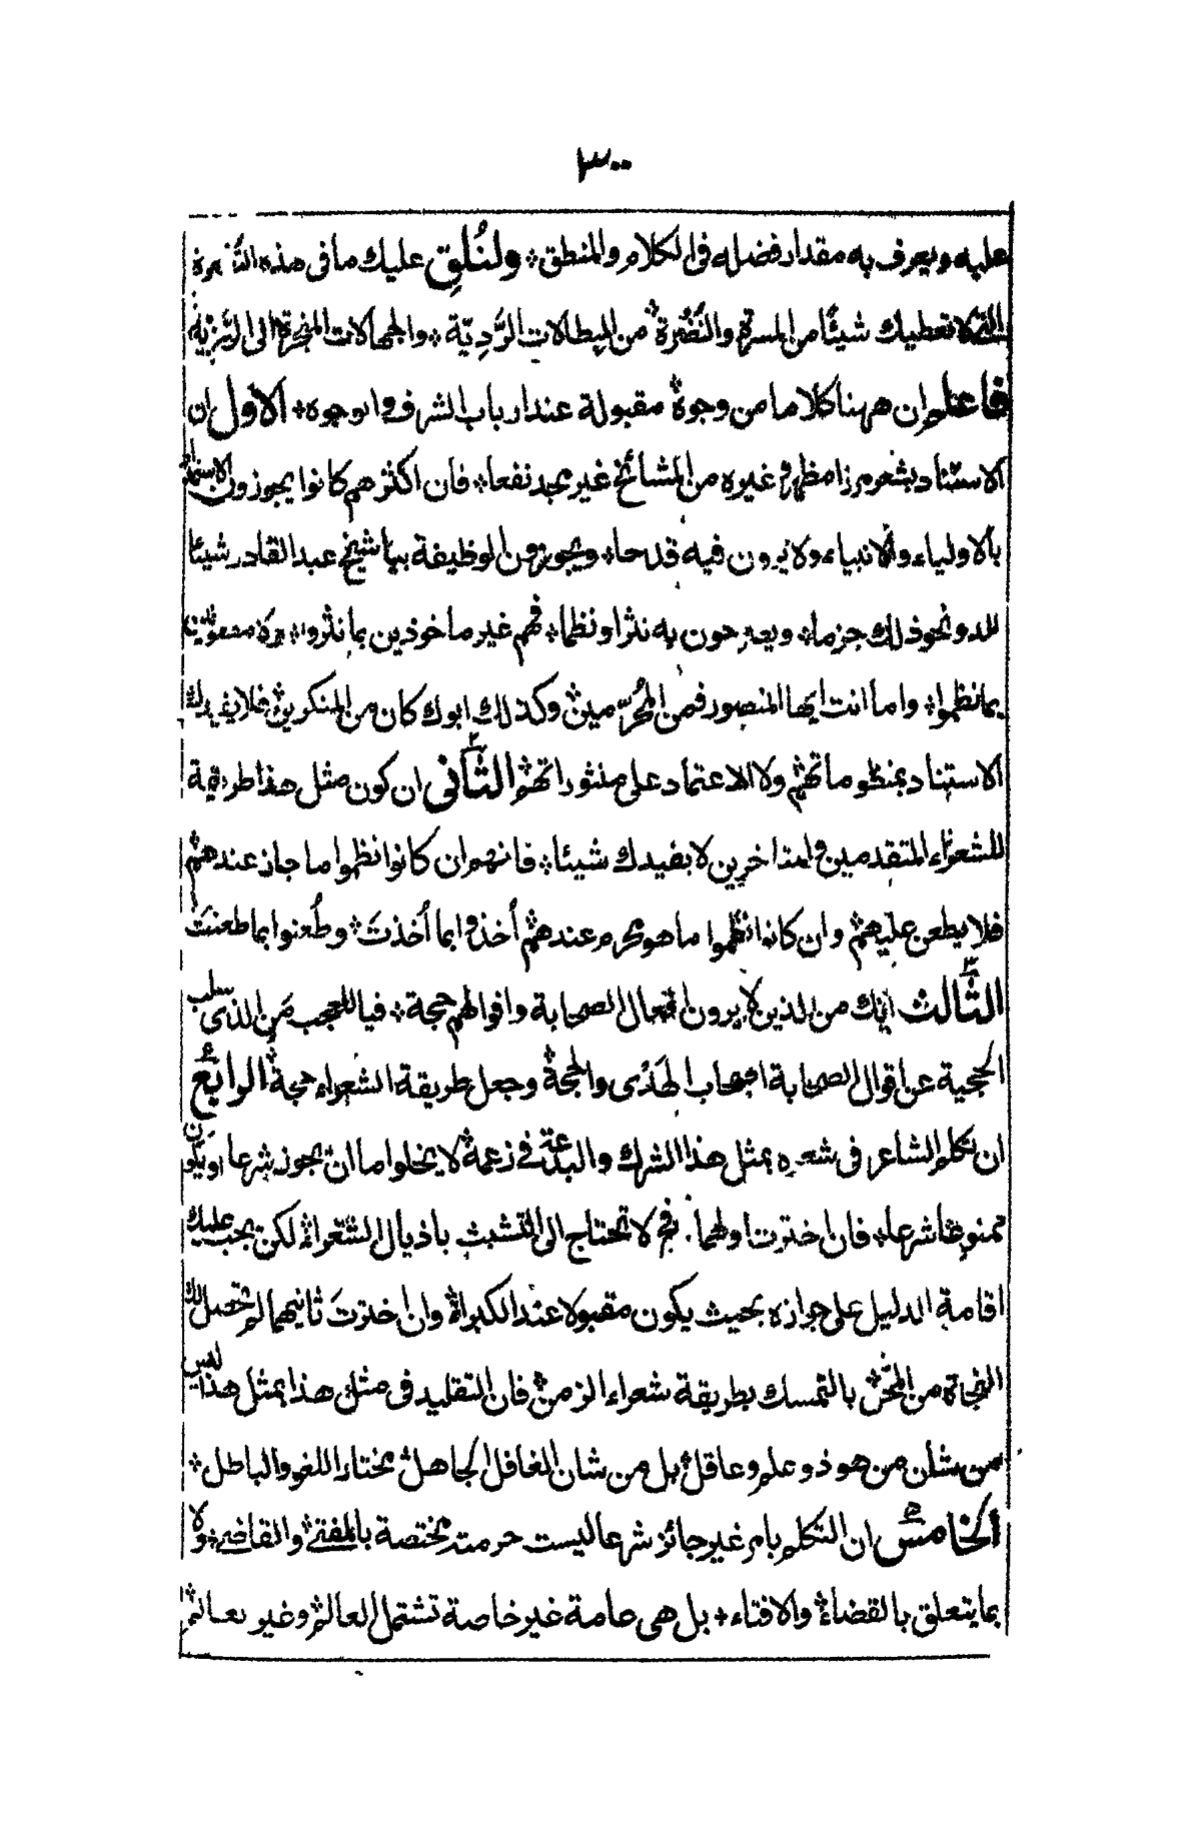 ٣٠٠
عليه ويعرف به مقدار فضله في الكلام والمنطق ۞ ولنُلقِ عليك ما في هذه
لا تعطيك شيئًا من المسرة والنُّضرة ۞ من البطالات الرَّدِيّة ۞ والجهالات المنجرة الى الرزية
فاعلم ان ههنا كلاما من وجوة ۞ مقبولة عند ارباب الشرف والوجوه ۞ الاول ان
الاستناد بشعر مرزا مظهر وغيره من المشائخ غير مجد نفعا ۞ فان اكثرهم كانوا يجوزون الاستمداد
بالاولياء والانبياء ولا يرون فيه قدحا ۞ ويجوزون الوظيفة بيا شيخ عبد القادر شيئا
لله ونحو ذلك جزما ۞ ويصرحون به نثرا ونظما ۞ فهم غير ماخوذين بما نثروا ۞
بما نظموا ۞ واما انت ايها المنصور فمن المُحرّمين ۞ وكذلك ابوك كان من المنكرين ۞ فلا يفيدك
الاستناد بمنظوماتهم ۞ ولا الاعتماد على منثوراتهم ۞ الثاني ٢ ان كون مثل هذا طريقة
للشعراء المتقدمين والمتاخرين لا يفيدك شيئا ۞ فانهم ان كانوا نظموا ما جاز عندهم ۞
فلا يطعن عليهم ۞ وان كانوا نظموا ما هو محرم عندهم ۞ اُخذوا بما اُخذتَ ۞ وطُعنوا بما طعنتَ
الثَّالث ٣ انك من الذين لا يرون افعال الصحابة واقوالهم حجة ۞ فيا للعجب مَن الذى سلب
الحجية عن اقوال الصحابة اصحاب الهَدْى والمحجة ۞ وجعل طريقة الشعراء حجة ۞ الرابع ٤
ان تكلم الشاعر في شعره بمثل هذا الشرك والبدعة في زعمه ۞ لا يخلوا ما ان يجوز شرعا او يكون
ممنوعا شرعا ۞ فان اخترت اولهما ۞ فح لا تحتاج الى التشبث باذيال الشعراء ۞ لكن يجب عليك
اقامة الدليل على جوازه بحيث يكون مقبولا عند الكبراء ۞ وان اخترتَ ثانيهما لم تحصل لك
النجاة من المحن ۞ بالتمسك بطريقة شعراء الزمن ۞ فان التقليد في مثل هذا بمثل هذا ليس
من شان من هو ذو علم وعاقل ۞ بل من شان الغافل الجاهل ۞ مختار اللغو والباطل ۞
الخامس ۵ ان التكلم بامر غير جائز شرعا ليست حرمته مختصة بالمفتى ۞ والقاضى ۞ ولا
بما يتعلق بالقضاء ۞ والافتاء ۞ بل هى عامة غير خاصة تشتمل العالم ۞ وغير